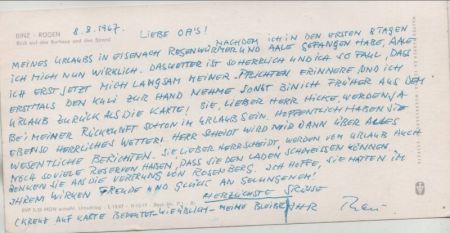 BINZ - RÜGEN
Blick auf das Kurhaus und den Strand
8.8.1967.
LIEBE OA'S!
NACHDEM ICH IN DEN ERSTEN 8 TAGEN
MEINES URLAUBS IN EISENACH ROSENWÜRMER UND AALE GEFANGEN HABE, AALE
ICH MICH NUN WIRKLICH. DAS WETTER IST SO HERRLICH UND ICH SO FAUL, DASS
ICH ERST JETZT MICH LANGSAM MEINER PFLICHTEN ERINNERE UND ICH
ERSTMALS DEN KULI ZUR HAND NEHME SONST BIN ICH FRÜHER AUS DEM
URLAUB ZURÜCK ALS DIE KARTE! SIE, LIEBER HERR HICKE, WERDEN JA
BEI MEINER RÜCKKUNFT SCHON IM URLAUB SEIN. HOFFENTLICH HABEN SIE
EBENSO HERRLICHES WETTER! HERR SCHEIDT WIRD MIR DANN ÜBER ALLES
WESENTLICHE BERICHTEN. SIE LIEBER HERR SCHEIDT, WERDEN VOM URLAUB AUCH
NOCH SOVIELE RESERVEN HABEN, DASS SIE DEN LADEN SCHMEISSEN KÖNNEN
DENKEN SIE AN DIE VERTRETUNG VON ROSENBERG. ICH HOFFE, SIE HATTEN IM
IHREM WIRKEN FREUDE UND GLÜCK AN GELUNGENEM!
HERZLICHSTE GRÜSSE
(KREUZ AUF KARTE BEDEUTET WIE ÜBLICH - MEINE BLEIBE) IHR